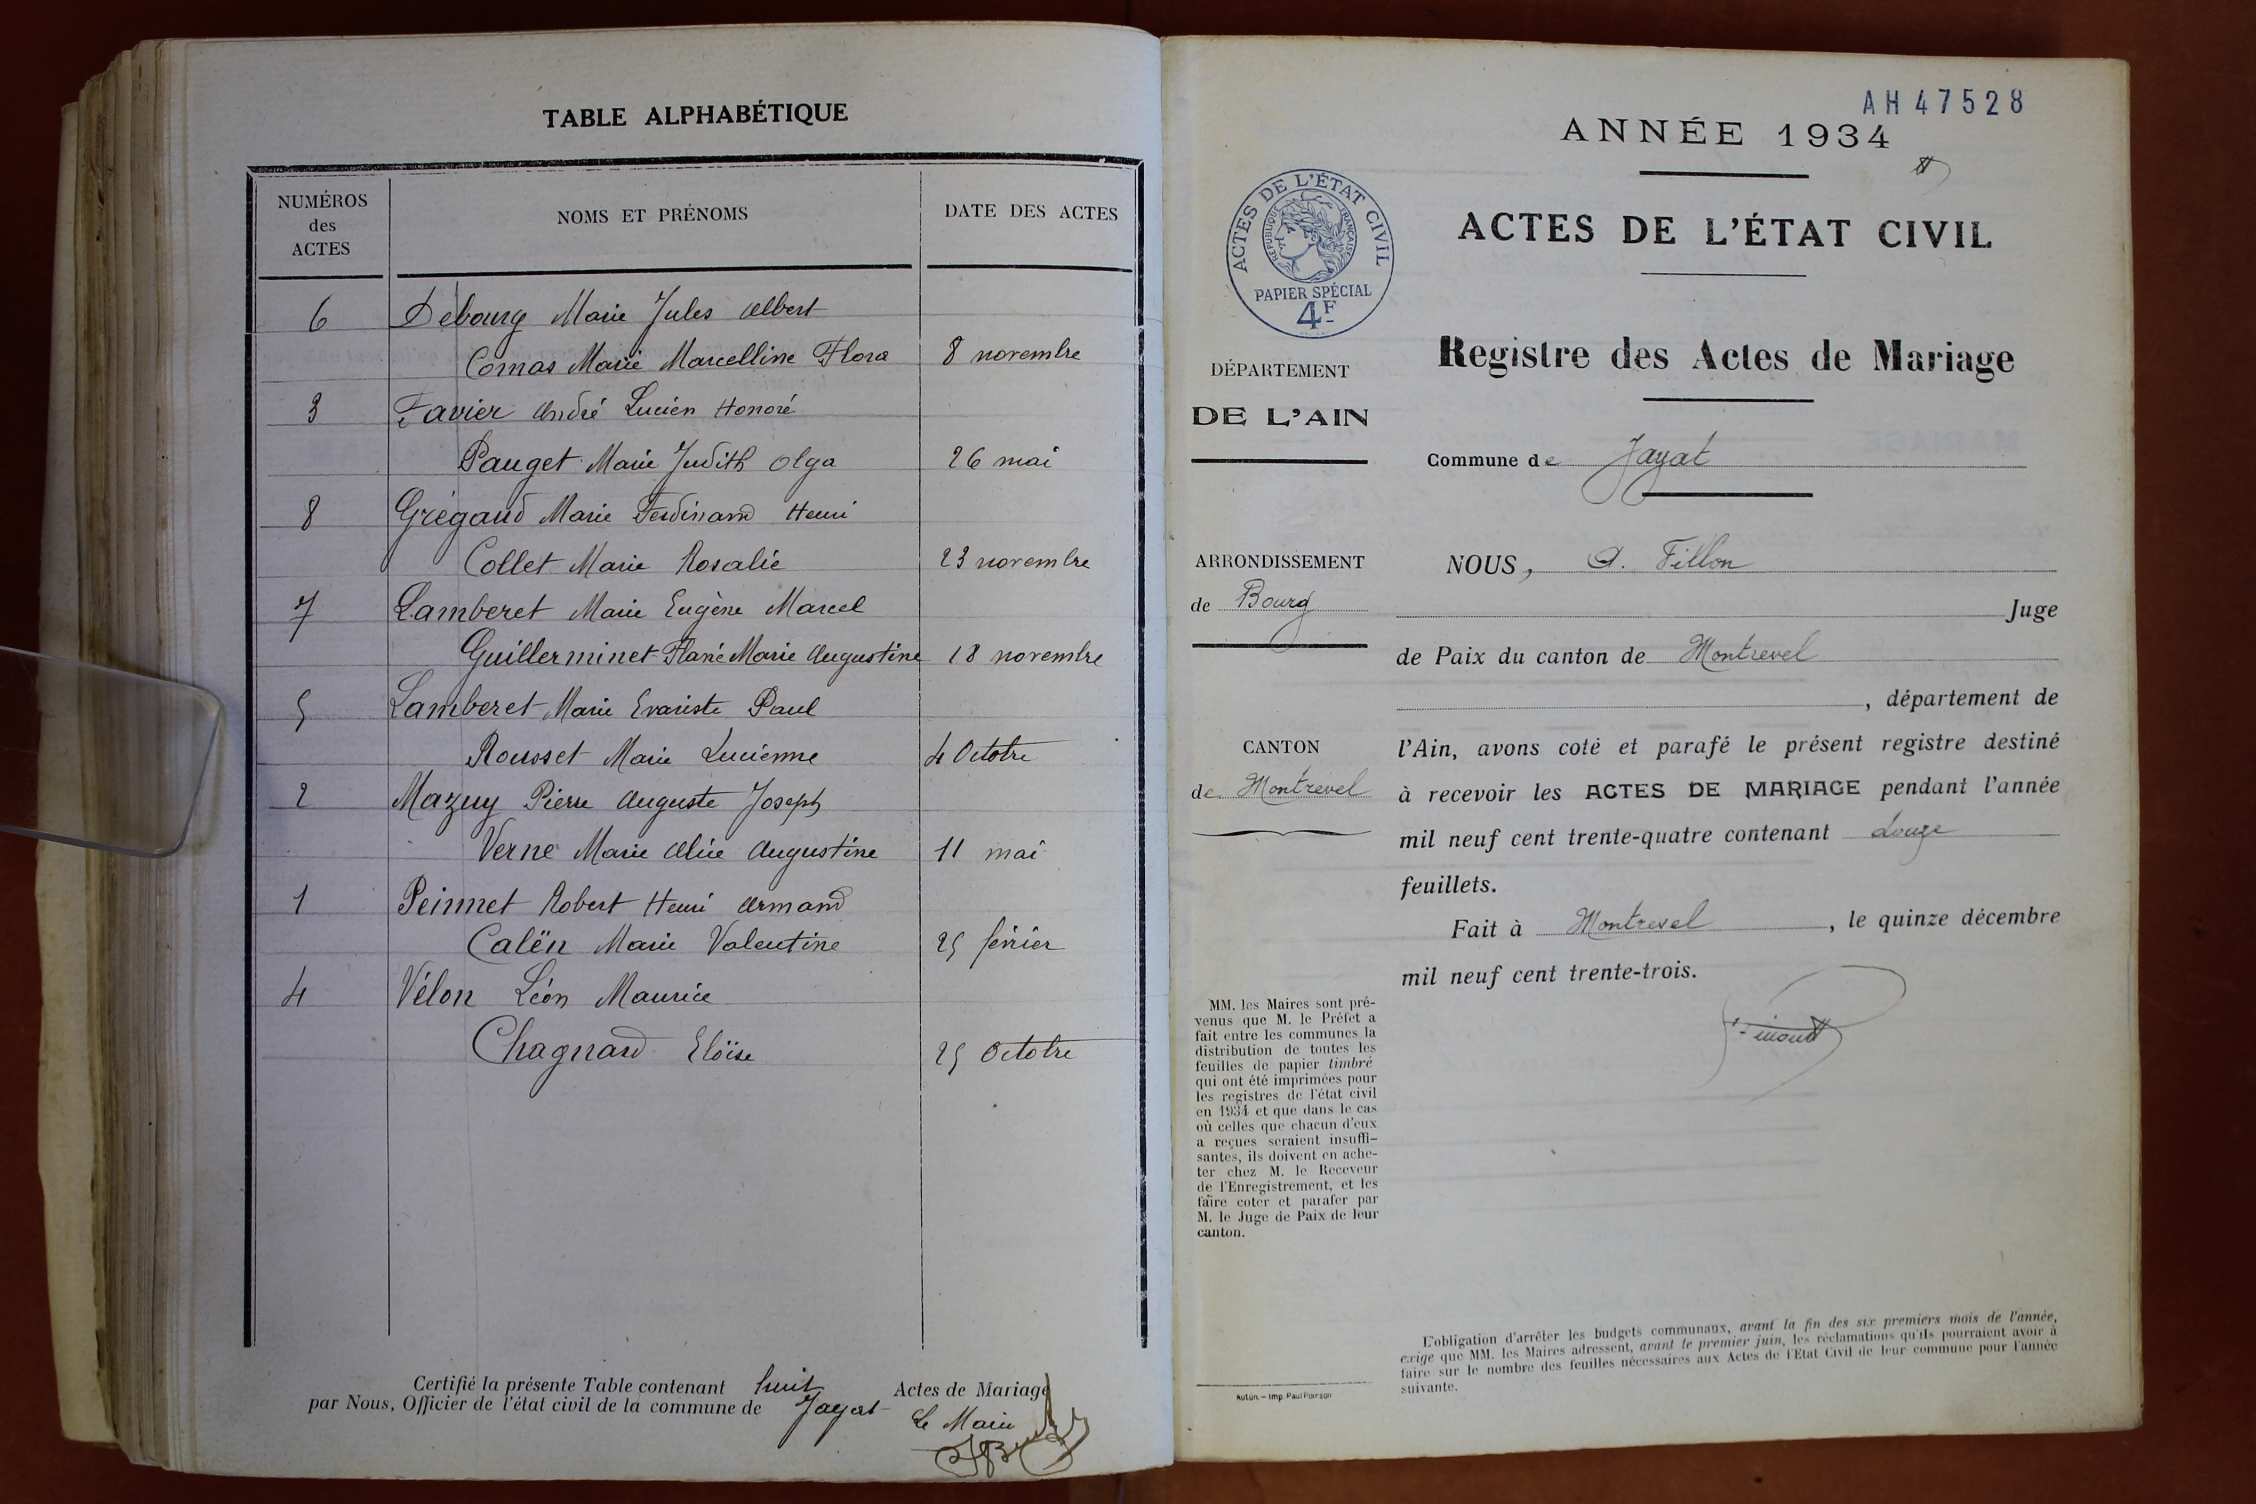 TABLE ALPHABÉTIQUE
NUMÉROS
des
ACTES
NOMS ET PRÉNOMS
DATE DES ACTES
6 Debourg Marie Jules Albert
Comas Marie Marcelline Flora 8 novembre
3 Favier André Lucien Honoré
Pauget Marie Judith Olga 26 mai
8 Grégaud Marie Ferdinand Henri
Collet Marie Rosalie 23 novembre
7 Lamberet Marie Eugène Marcel
Guillerminet Flavie Marie Augustine 18 novembre
5 Lamberet Marie Evariste Paul
Rousset Marie Lucienne 4 Octobre
2 Mazuy Pierre Auguste Joseph
Verne Marie Alice Augustine 11 mai
1 Peinnet Robert Henri Armand
Calën Marie Valentine 25 février
4 Vélon Léon Maurice
Chagnard Eloïse 25 Octobre
Certifié la présente Table contenant huit Actes de Mariage
par Nous, Officier de l'état civil de la commune de Jayat
Le Maire
AH 47528
ANNÉE 1934
ACTES DE L'ÉTAT CIVIL
RÉPUBLIQUE FRANÇAISE
PAPIER SPÉCIAL
4F
ACTES DE L'ÉTAT CIVIL
Registre des Actes de Mariage
DÉPARTEMENT
DE L'AIN
Commune de Jayat
ARRONDISSEMENT
de Bourg
CANTON
de Montrevel
NOUS, A. Fillon
Juge
de Paix du canton de Montrevel
, département de
l'Ain, avons coté et parafé le présent registre destiné
à recevoir les ACTES DE MARIAGE pendant l'année
mil neuf cent trente-quatre contenant douze
feuillets.
Fait à Montrevel, le quinze décembre
mil neuf cent trente-trois.
MM. les Maires sont pré-
venus que M. le Préfet a
fait entre les communes la
distribution de toutes les
feuilles de papier timbré
qui ont été imprimées pour
les registres de l'état civil
en 1934 et que dans le cas
où celles que chacun d'eux
a reçues seraient insuffi-
santes, ils doivent en ache-
ter chez M. le Receveur
de l'Enregistrement, et les
faire coter et parafer par
M. le Juge de Paix de leur
canton.
Autun. – Imp. Paul Poirson
L'obligation d'arrêter les budgets communaux, avant la fin des six premiers mois de l'année,
exige que MM. les Maires adressent, avant le premier juin, les réclamations qu'ils pourraient avoir à
faire sur le nombre des feuilles nécessaires aux Actes de l'Etat Civil de leur commune pour l'année
suivante.